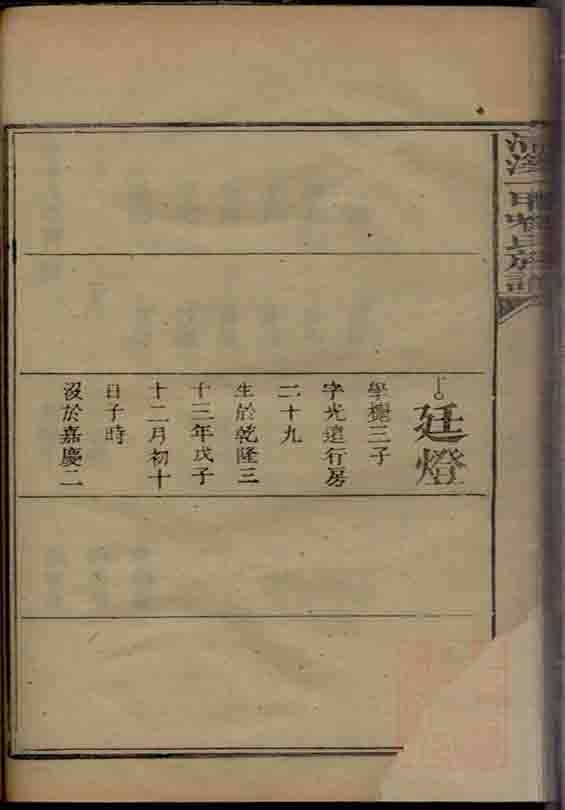 氏族譜
廷燈
學三子
字光遠行房
二十九
生於乾隆三
十三年戊子
十二月初十
日子時
沒於嘉慶二